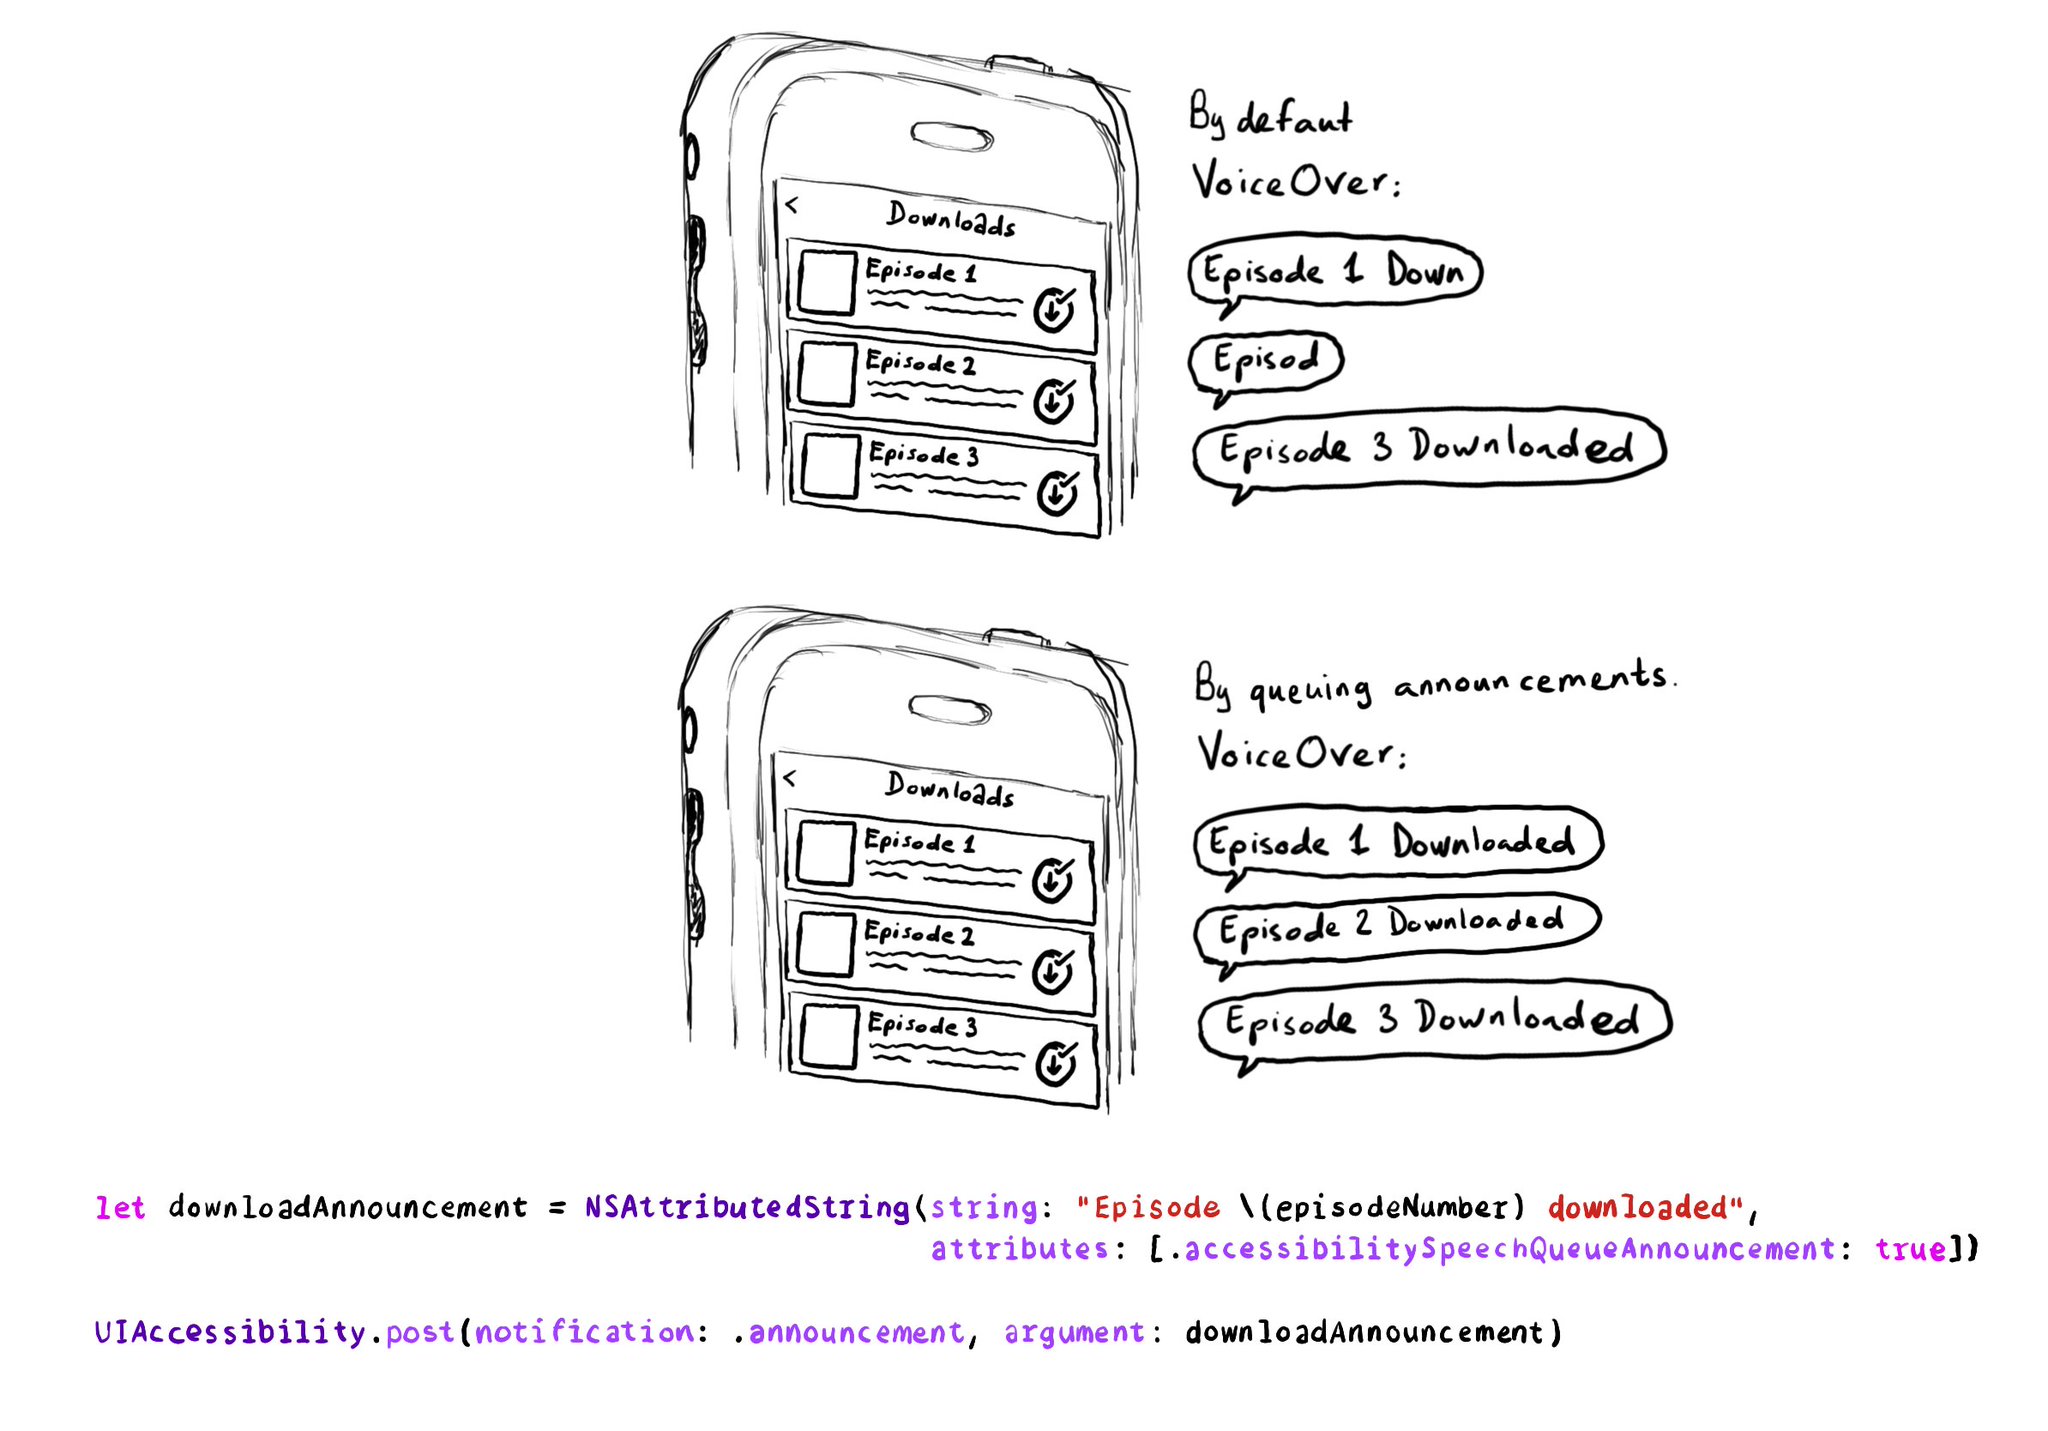 <
Downloads
Episode 1
Episode 2
Episode 3
By defaut
VoiceOver:
Episode 1 Down
Episod
Episode 3 Downloaded
<
Downloads
Episode 1
Episode 2
Episode 3
By queuing announcements.
VoiceOver:
Episode 1 Downloaded
Episode 2 Downloaded
Episode 3 Downloaded
let downloadAnnouncement = NSAttributedString(string: "Episode \(episodeNumber) downloaded",
attributes: [.accessibilitySpeechQueueAnnouncement: true])
UIAccessibility.post(notification: .announcement, argument: downloadAnnouncement)